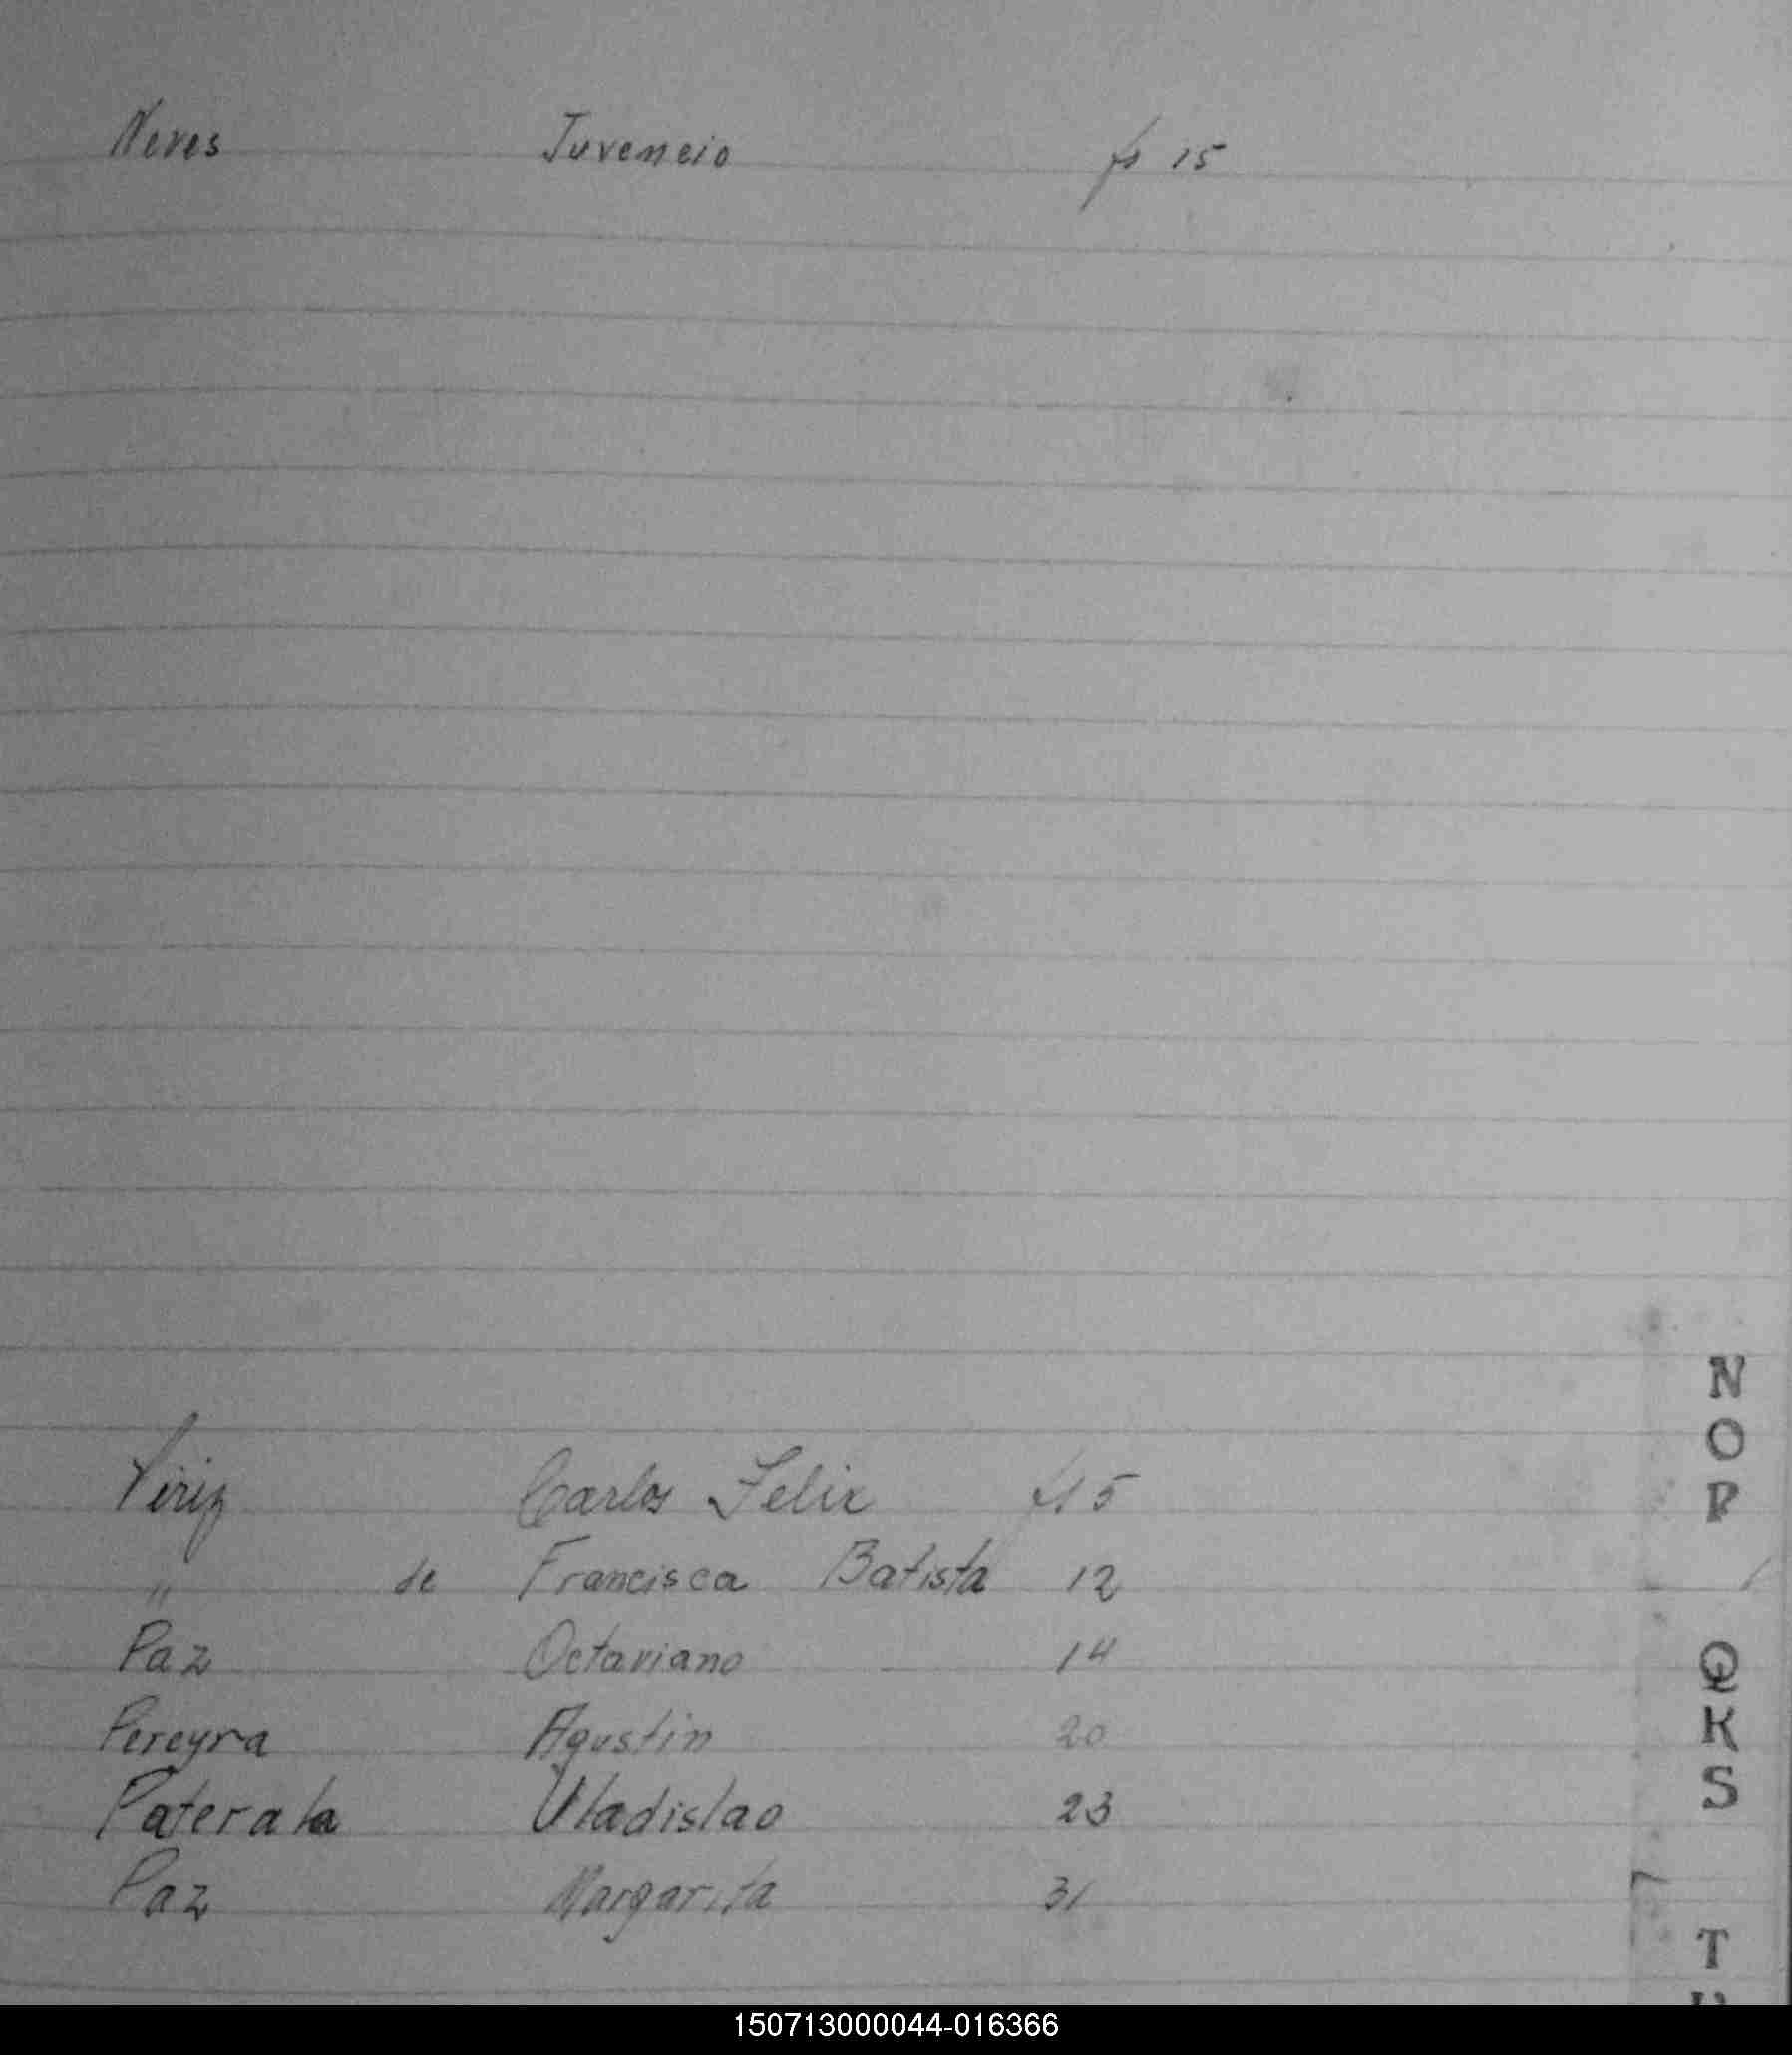 Neves Juvencio fs 15
Piriz Carlos Felix fs 5
" de Francisca Batista 12
Paz Octaviano 14
Pereyra Agustin 20
Uladislao 23
Paz Margarita 31
N
O
P
Q
R
S
T
150713000044-016366